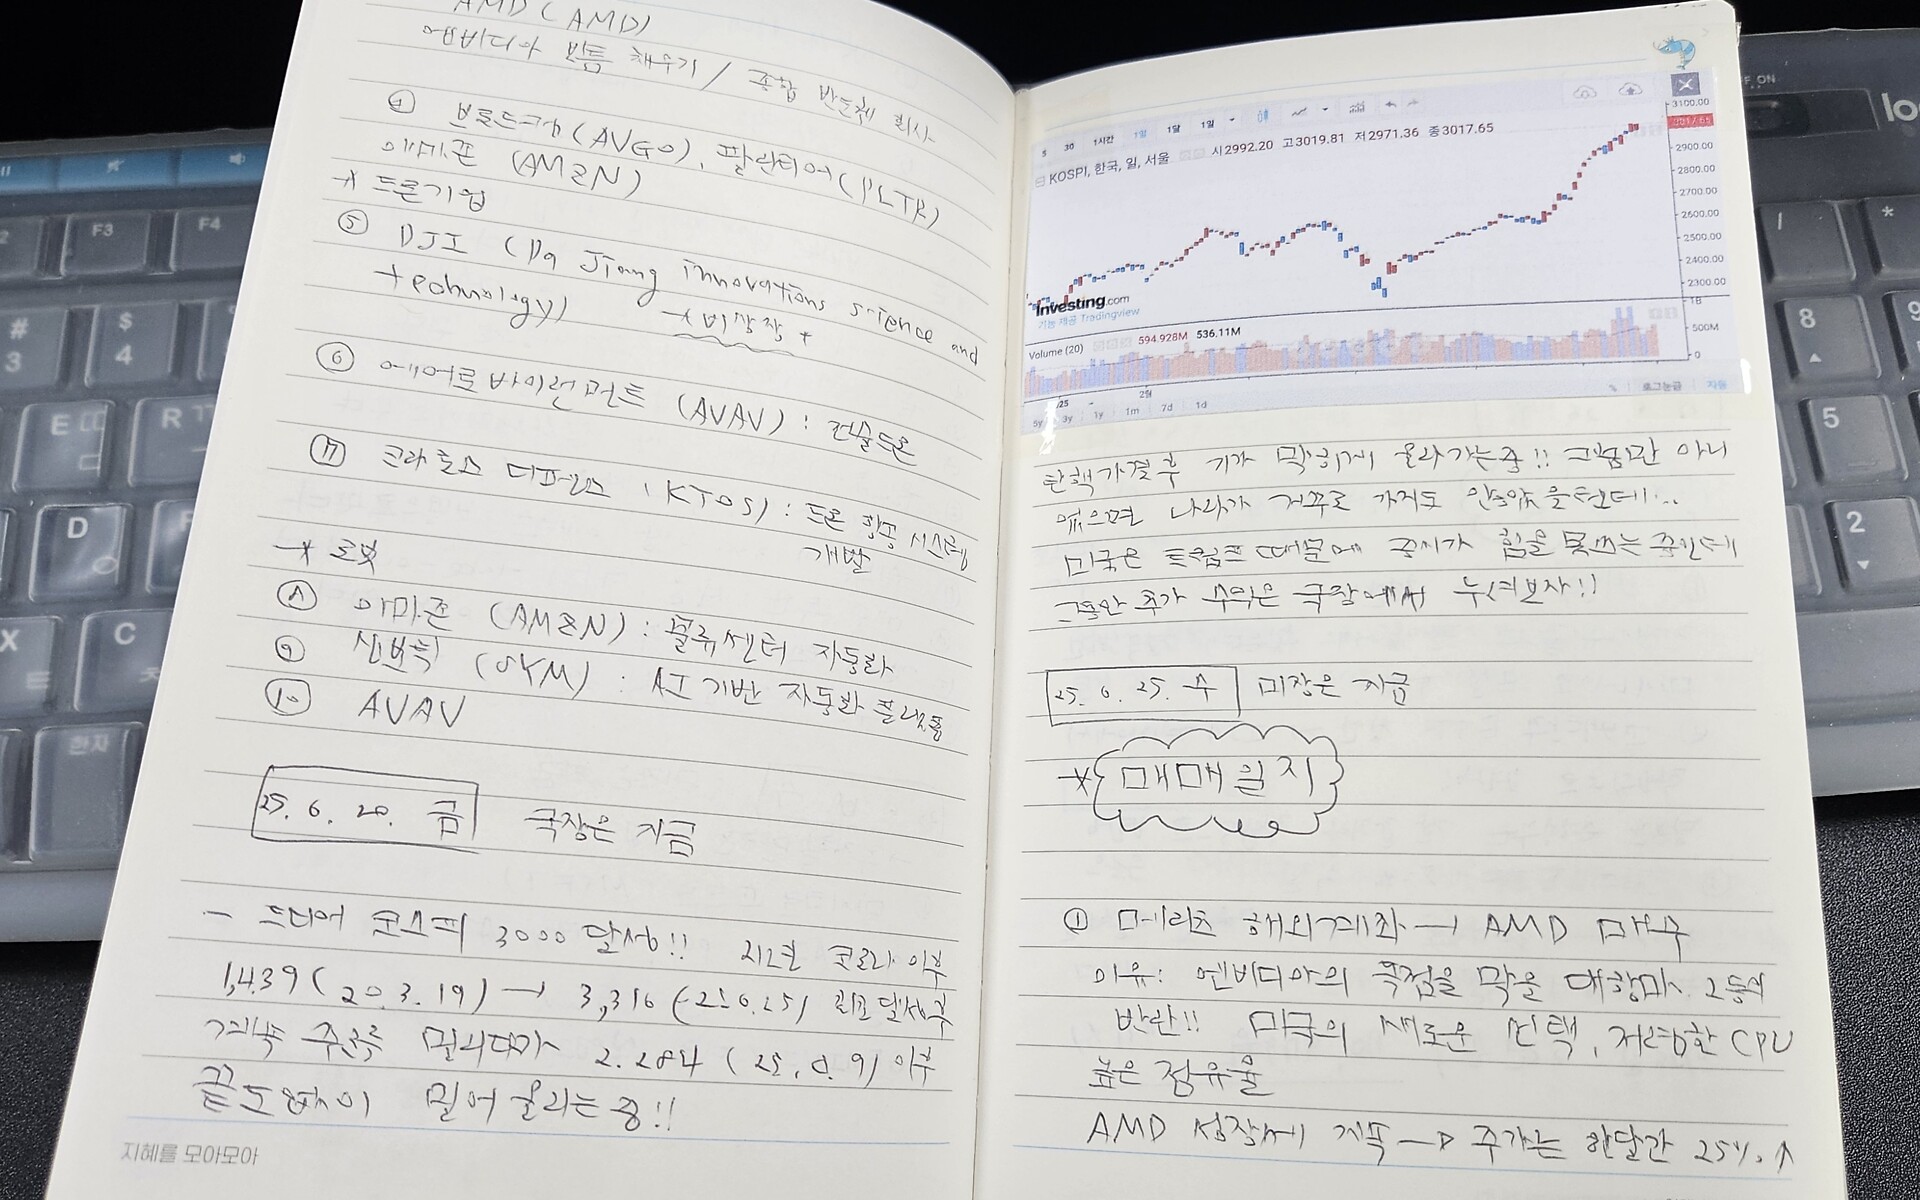 AMD (AMD)
엔비디아 빈틈 채우기 / 종합 반도체 회사
④ 브로드컴(AVGO), 팔란티어(PLTR)
아마존 (AMZN)
* 드론기업
⑤ DJI (Da Jiang innovations science and
technology) * 비상장 *
⑥ 에어로바이런먼트 (AVAV) : 전술드론
⑦ 크라토스 디펜스 (KTOS) : 드론 항공 시스템
개발
* 로봇
⑧ 아마존 (AMZN) : 물류센터 자동화
⑨ 심보틱 (SYM) : AI 기반 자동화 플랫폼
⑩ AVAV
25. 6. 20. 금 국장은 지금
- 드디어 코스피 3000 달성!! 지난번 코로나 이후
1,439 (20.3.19) → 3,316 (21.6.25) 최고 달성후
계속 주르륵 밀리다가 2.284 (25. 4. 9) 이후
끝도없이 밀어 올리는 중!!
지혜를 모아모아
5 30 1시간 1일 1달 1일
KOSPI, 한국, 일, 서울 시2992.20 고3019.81 저2971.36 종3017.65
3100.00
3017.65
2900.00
2800.00
2700.00
2600.00
2500.00
2400.00
2300.00
Investing.com
기능 제공 Tradingview
Volume (20) 594.928M 536.11M
1B
500M
0
25 2월
5y 3y 1y 1m 7d 1d
% 로그눈금 자동
탄핵가결후 기가 막히게 올라가는중!! 그놈만 아니
였으면 나라가 거꾸로 가지도 않았을텐데...
미국은 트럼프 때문에 증시가 힘을 못쓰는 중인데
그동안 추가 수익은 국장에서 누려보자!!
25. 6. 25. 수 미장은 지금
* 매매일지
① 메리츠 해외계좌 → AMD 매수
이유: 엔비디아의 독점을 막을 대항마. 2등의
반란!! 미국의 새로운 선택, 저렴한 CPU
높은 점유율
AMD 성장세 계속 → 주가는 한달간 25% ↑
F3
F4
# 3
$ 4
E
R
D
F
X
C
한자
/
*
8
9
5
2
F_ON
lo